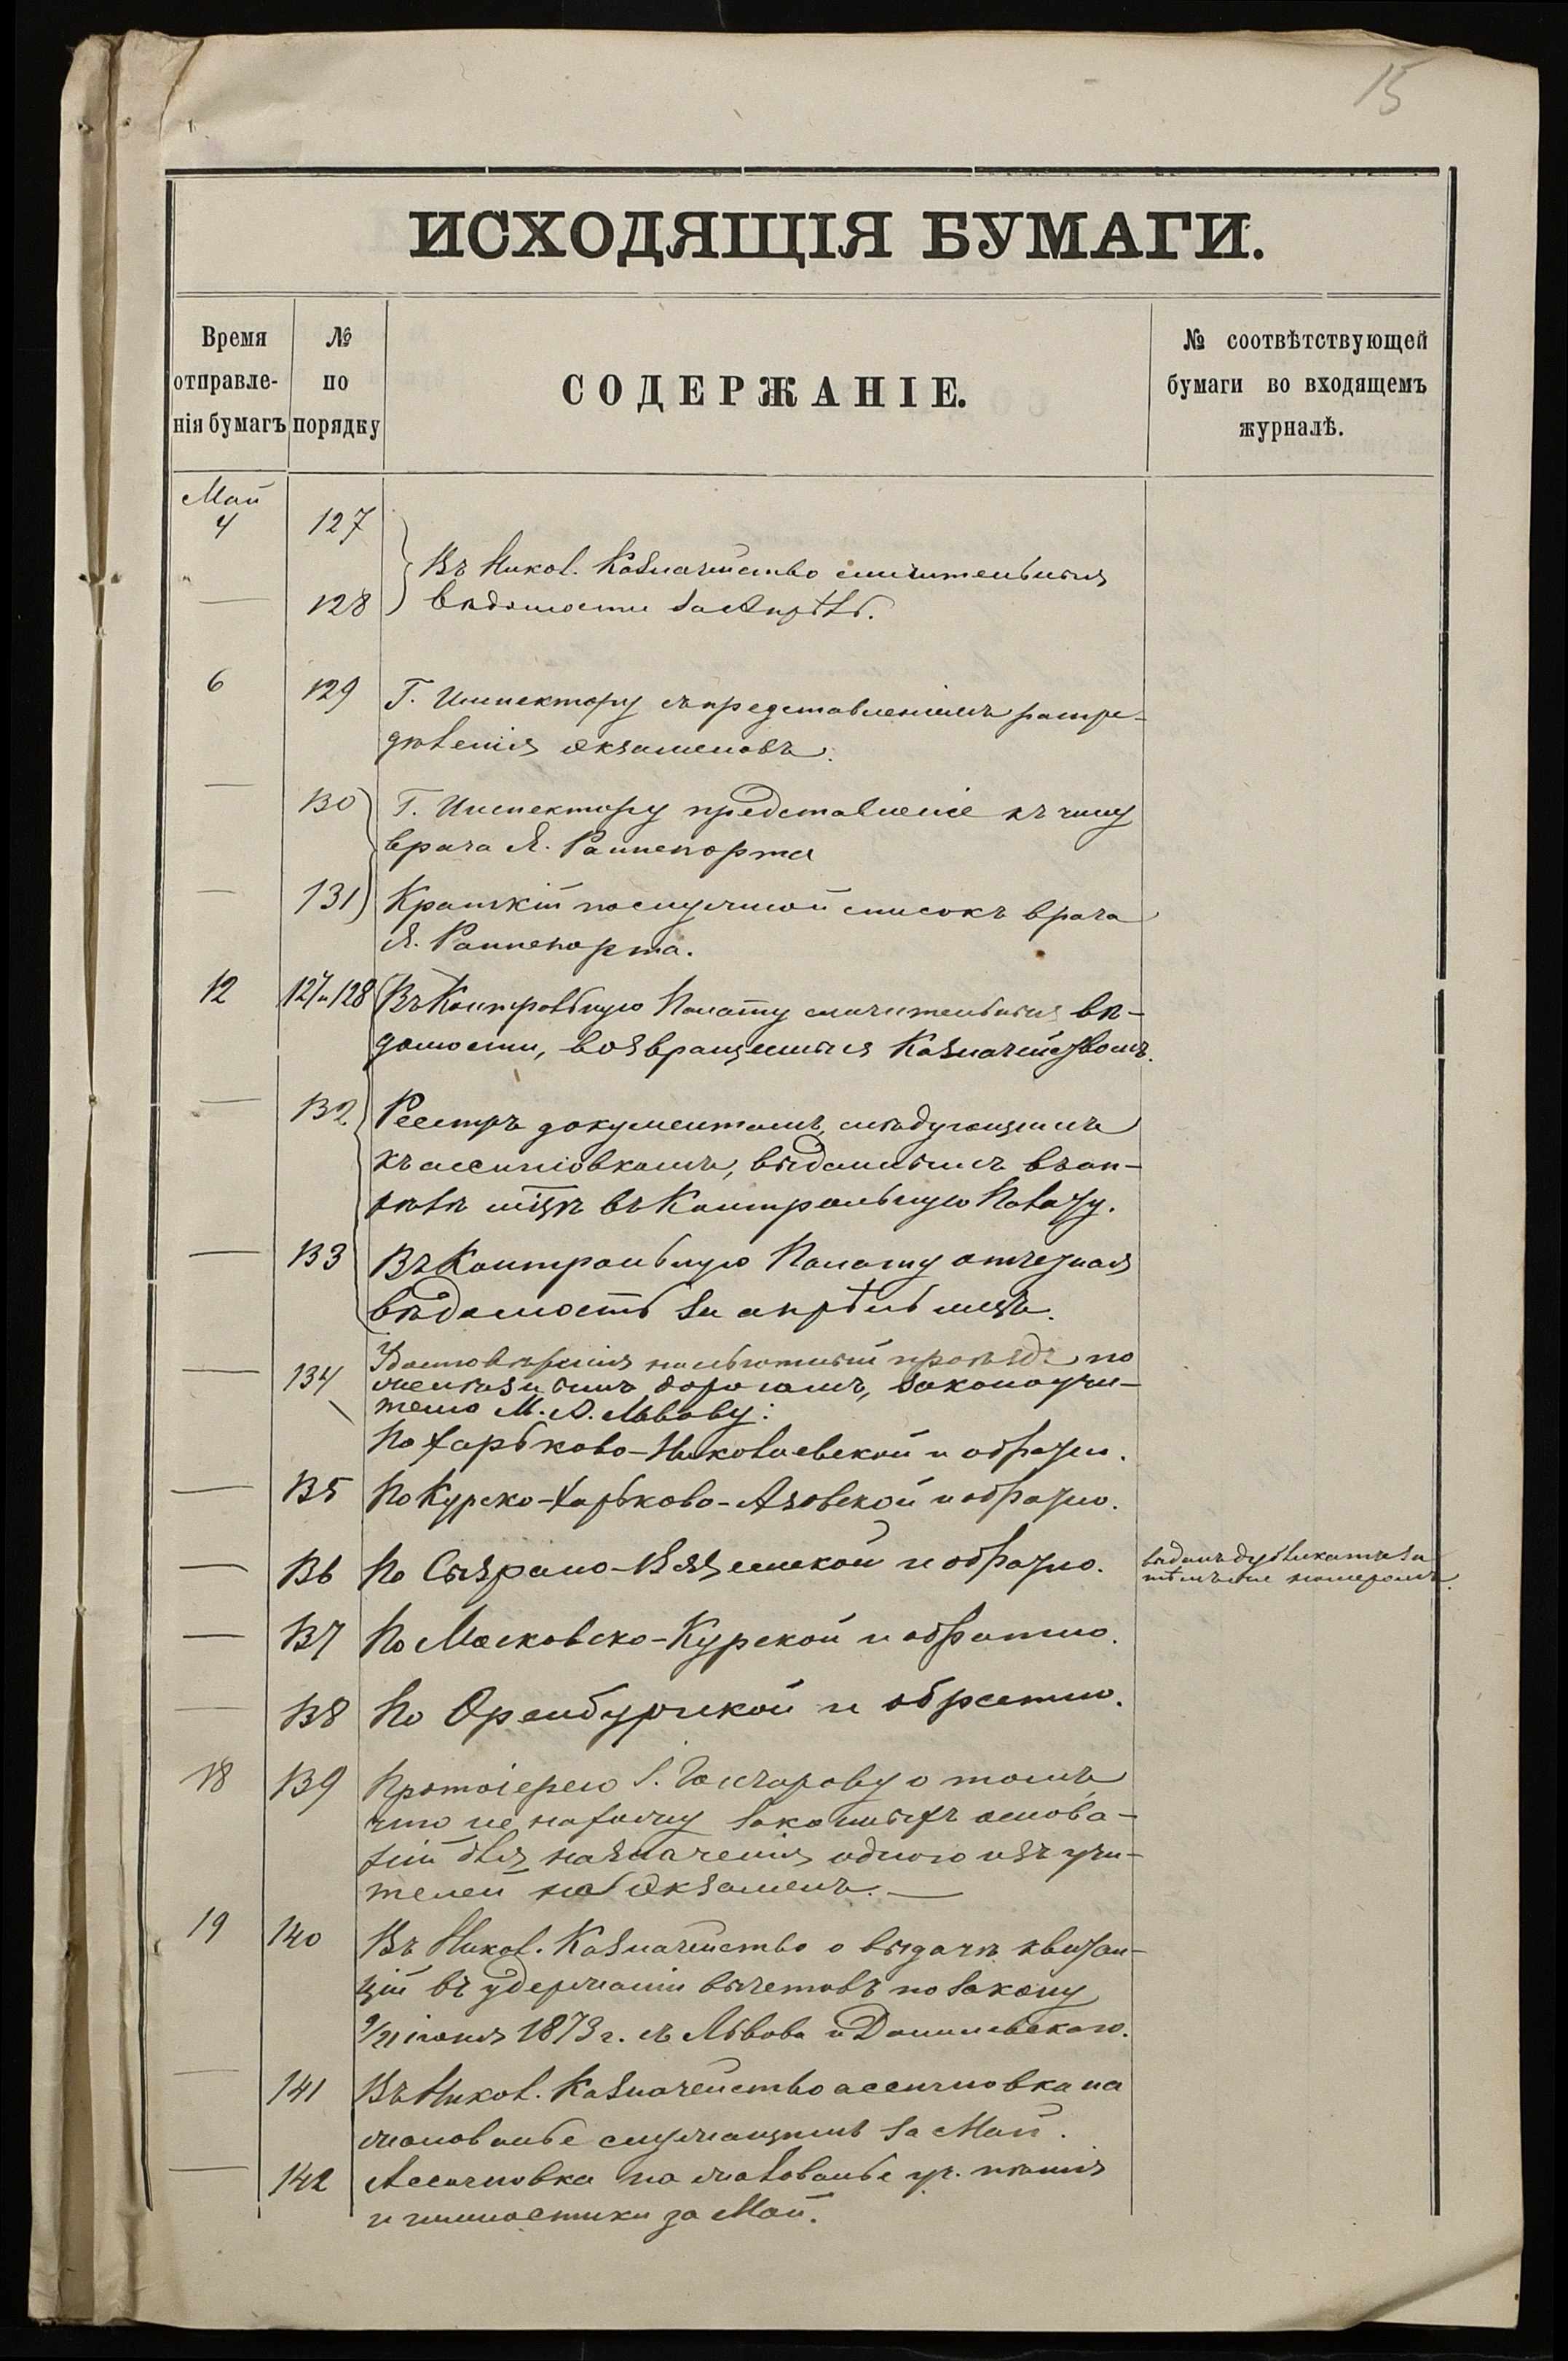 15
ИСХОДЯЩІЯ БУМАГИ.
Время отправле-нія бумагъ
№ по порядку
СОДЕРЖАНІЕ.
№ соотвѣтствующей бумаги во входящемъ журналѣ.
Май
4 127
Въ Никол. Казначейство сличительныя
— 128 вѣдомости за Апрѣль.
6 129 Г. Инспектору съ представленіемъ распре-
дѣленія экзаменовъ.
— 130 Г. Инспектору представленіе къ чину
врача Я. Раппепорта
— 131 Краткій послужной списокъ врача
Я. Раппепорта.
12 127 и 128 Въ Контрольную Палату сличительныя вѣ-
домости, возвращенныя Казначействомъ.
— 132 Реестръ документамъ, слѣдующимъ
къ ассигновкамъ, выданнымъ въ ап-
рѣлѣ мцѣ въ Контрольную Палату.
— 133 Въ Контрольную Палату отчетная
вѣдомость за апрѣль мцъ.
— 134 Удостовѣренія на льготный проѣздъ по
желѣзнымъ дорогамъ, законоучи-
телю М. А. Львову:
По Харьково-Николаевской и обратно.
— 135 По Курско-Харьково-Азовской и обратно.
— 136 По Сызрано-Вяземской и обратно. выданъ дубликатъ за
тѣмъ же номеромъ.
— 137 По Московско-Курской и обратно.
— 138 По Оренбургской и обратно.
18 139 Протоіерею І. Гончарову о томъ,
что не нахожу законныхъ основа-
ній для назначенія одного изъ учи-
телей на экзаменъ. —
19 140 Въ Никол. Казначейство о выдачѣ квитан-
цій въ удержаніи вычетовъ по закону
9/21 іюня 1873 г. съ Львова и Данилевскаго.
— 141 Въ Никол. Казначейство ассигновка на
жалованье служащимъ за Май.
— 142 Ассигновка на жалованье уч. пѣнія
и гимнастики за Май.